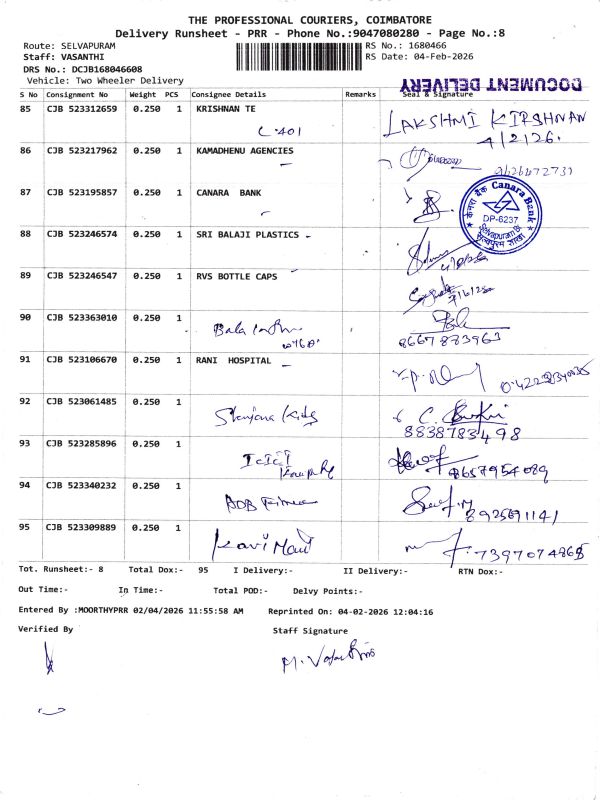 THE PROFESSIONAL COURIERS, COIMBATORE
Delivery Runsheet - PRR - Phone No.:9047080280 - Page No.:8
Route: SELVAPURAM
RS No.: 1680466
Staff: VASANTHI
RS Date: 04-Feb-2026
DRS No.: DCJB168046608
Vehicle: Two Wheeler Delivery
DOCUMENT DELIVERY
S No Consignment No Weight PCS Consignee Details Remarks Seal & Signature
85 CJB 523312659 0.250 1 KRISHNAN TE LAKSHMI KIRSHNAN
C.401 4/2/26.
86 CJB 523217962 0.250 1 KAMADHENU AGENCIES
87 CJB 523195857 0.250 1 CANARA BANK
केनरा बैंक Canara Bank
DP-6237
88 CJB 523246574 0.250 1 SRI BALAJI PLASTICS
89 CJB 523246547 0.250 1 RVS BOTTLE CAPS
90 CJB 523363010 0.250 1 Bala
8667883963
91 CJB 523106670 0.250 1 RANI HOSPITAL
92 CJB 523061485 0.250 1
8838783498
93 CJB 523285896 0.250 1 ICICI
8657954089
94 CJB 523340232 0.250 1
8925691141
95 CJB 523309889 0.250 1 Kavi Mani
7397074865
Tot. Runsheet:- 8 Total Dox:- 95 I Delivery:- II Delivery:- RTN Dox:-
Out Time:- In Time:- Total POD:- Delvy Points:-
Entered By :MOORTHYPRR 02/04/2026 11:55:58 AM Reprinted On: 04-02-2026 12:04:16
Verified By Staff Signature